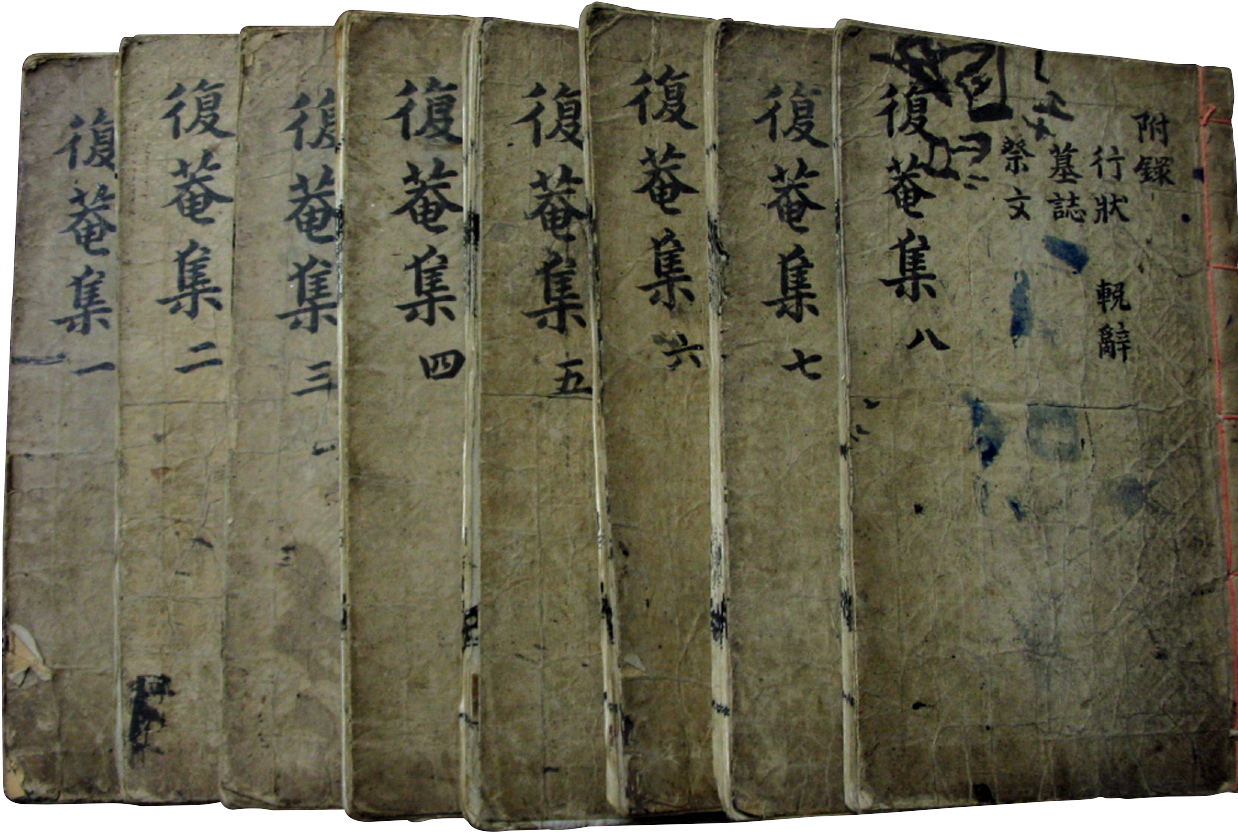 復菴集一
復菴集二
復菴集三
復菴集四
復菴集五
復菴集六
復菴集七
復菴集八
附錄
行狀 輓辭
墓誌
祭文